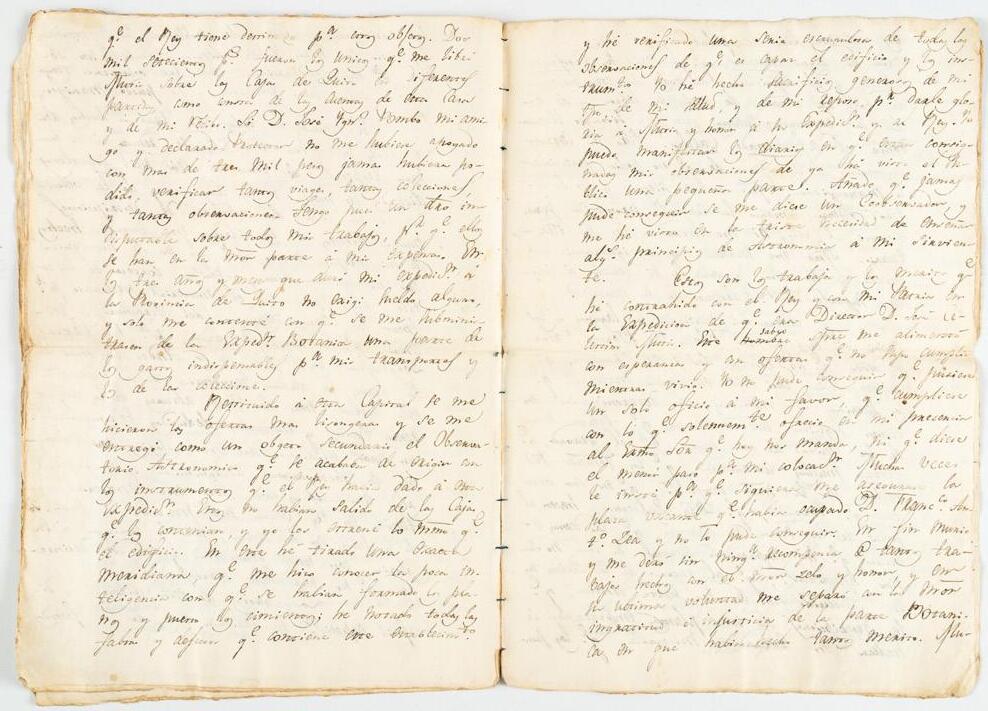 q.e el Rey tiene p.a estos objetos. Dos
mil setecientos p.s fueron los unicos q.e me libró
Mutis sobre las Caxas de Quito en diferentes
partidas, como consta de las cuentas de esta Caxa
y de mi recibo. Si D. José Ygn.o Pombo mi ami-
go y declarado Protector no me hubiera apoyado
con mas de tres mil pesos jamas hubiera po-
dido verificar tantos viages, tantas colecciones
y tantas observaciones. Tengo pues un dro in-
disputable sobre todos mis trabajos, p.r q.e ellos
se han en la mor parte á mis expensas. En
los tres años y meses que duró mi expedic.n á
la Provincia de Quito no exigí sueldo alguno,
y solo me contenté con q.e se me submini-
trasen de la Exped.n Botanica una parte de
los gastos indispensables p.a mis transportes y
los de las colecciones.
Restituido á esta Capital se me
hicieron las ofertas mas lisongeras y se me
entregó como un objeto secundario el Observa-
torio Astronomico q.e se acababa de erigir con
los instrumentos q.e el Rey havia dado á esta
Expedic.n Estos no habian salido de las Caxas
q.e los contenian, y yo los estrené lo mismo q.e
el edificio. En este hé tirado una exacta
meridiana q.e me hizo conocer la poca in-
teligencia con q.e se habian formado los pla-
nos y puesto los cimientos; he notado todas las
faltas y defectos q.e contiene este establecim.to
y hé verificado una serie de todas las
observaciones de q.e es capaz el edificio y los ins-
trum.tos Yo hé hecho sacrificios generosos de mi
tpo, de mi salud, y de mi reposo p.r darle glo-
ria á Mutis y honor á su Expedic.n y al Rey. Yo
puedo manifestar los diarios en q.e estan consig-
nadas mis observaciones de q.e ya há visto el Pu-
blico una pequeña parte. Añado q.e jamas
pude conseguir se me diese un Coobservador y
me hé visto en la triste necesidad de enseñar
alg.s principios de Astronomia á mi sirvien-
te. Estos son los trabajos y los meritos q.e
hé contrahido con el Rey y con mi Patria en
la Expedicion de q.e era Director D. José Ce-
lestino Mutis. Este sabio spre me alimentó
con esperanzas y con ofertas q.e no supo cumplir
mientras vivió. Yo no pude conseguir q.e pusiera
un solo oficio á mi favor, q.e cumpliese
con lo q.e solemnem.te ofreció en mi presencia
al Exmo Sor q.e hoy nos manda. Ni q.e diese
el menor paso p.a mi colocac.n Muchas veces
le insté p.a q.e siquiera me asegurase la
plaza vacante q.e habia ocupado D. Franc.co An-
t.o Zea y no lo pude conseguir. En fin murió
y me dexó sin ning.a recompensa á tantos tra-
bajos hechos con el mor zelo y honor y en
su ultima voluntad me separó con la mor
ingratitud é injusticia de la parte Botani-
ca en que habia hecho tantos meritos. Mu-